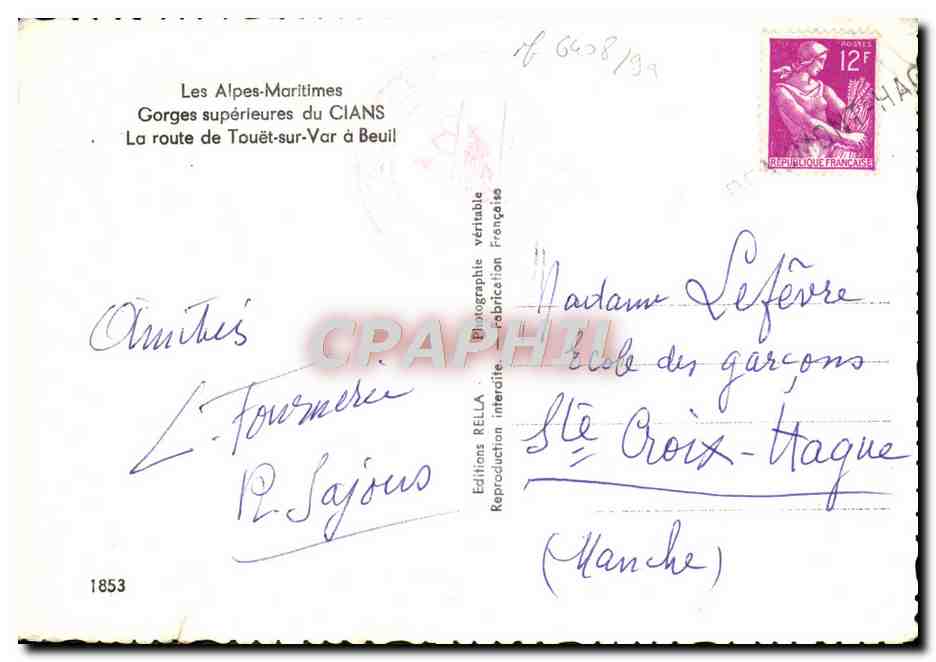 Les Alpes-Maritimes
Gorges supérieures du CIANS
La route de Touët-sur-Var à Beuil
rf 6408/9a
POSTES
12F
RÉPUBLIQUE FRANÇAISE
Amitiés
L. Fournerie
R. Sajous
1853
Editions RELLA. Photographie véritable
Reproduction interdite. Fabrication Française
CPAPHIL
Madame Lefêvre
Ecole des garçons
Ste Croix-Hague
(Manche)